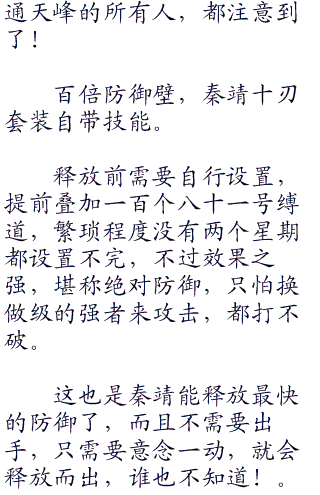 通天峰的所有人，都注意到
了！
百倍防御壁，秦靖十刃
套装自带技能。
释放前需要自行设置，
提前叠加一百个八十一号缚
道，繁琐程度没有两个星期
都设置不完，不过效果之
强，堪称绝对防御，只怕换
做级的强者来攻击，都打不
破。
这也是秦靖能释放最快
的防御了，而且不需要出
手，只需要意念一动，就会
释放而出，谁也不知道！。